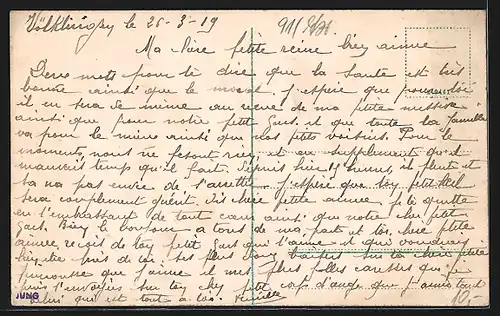 Völklingen le 26-3-19
Ma chère petite reine bien aimée
Deux mots pour te dire que la santé est très
bonne ainsi que le moral. J'espère que pour toi
il en sera de même au reçu de ma petite missive
ainsi que pour notre petit Gars. et que toute la famille
va pour le mieux ainsi que nos petits voisins. Pour le
moment, nous ne fesont rien, et en supplement quel
mauvais temps qu'il fait. Depuis hier il pleut et
ça na pas envie de s'arrêter. J'espère que ton petit
sera complement guérit. chère petite aimée, je te quitte
en t'embrassant de tout cœur ainsi que notre cher petit
Gars. Bien le bonjour a tous de ma part et toi chère petite
aimée, reçois de ton petit Gars qui t'aime et qui voudrait
bien être près de toi ses plus doux baisers sur ta chère petite
que j'aime et mes plus folles caresses que je
puis t'envoyer sur ton cher petit corps d'ange que j'aime tant
celui qui est tout à toi.
JUNG
10,-